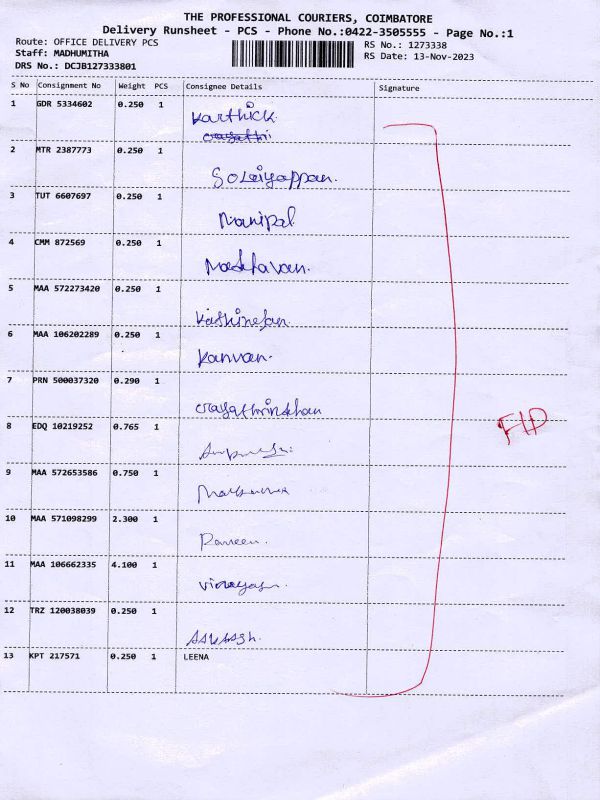 THE PROFESSIONAL COURIERS, COIMBATORE
Delivery Runsheet - PCS - Phone No.:0422-3505555 - Page No.:1
Route: OFFICE DELIVERY PCS
Staff: MADHUMITHA
DRS No.: DCJB127333801
RS No.: 1273338
RS Date: 13-Nov-2023
S No Consignment No Weight PCS Consignee Details Signature
1 GDR 5334602 0.250 1
Karthick
2 MTR 2387773 0.250 1
Solaiyappan.
3 TUT 6607697 0.250 1
Manipal
4 CMM 872569 0.250 1
Madhavan.
5 MAA 572273420 0.250 1
6 MAA 106202289 0.250 1
Kannan.
7 PRN 500037320 0.290 1
8 EDQ 10219252 0.765 1
9 MAA 572653586 0.750 1
10 MAA 571098299 2.300 1
11 MAA 106662335 4.100 1
12 TRZ 120038039 0.250 1
13 KPT 217571 0.250 1 LEENA